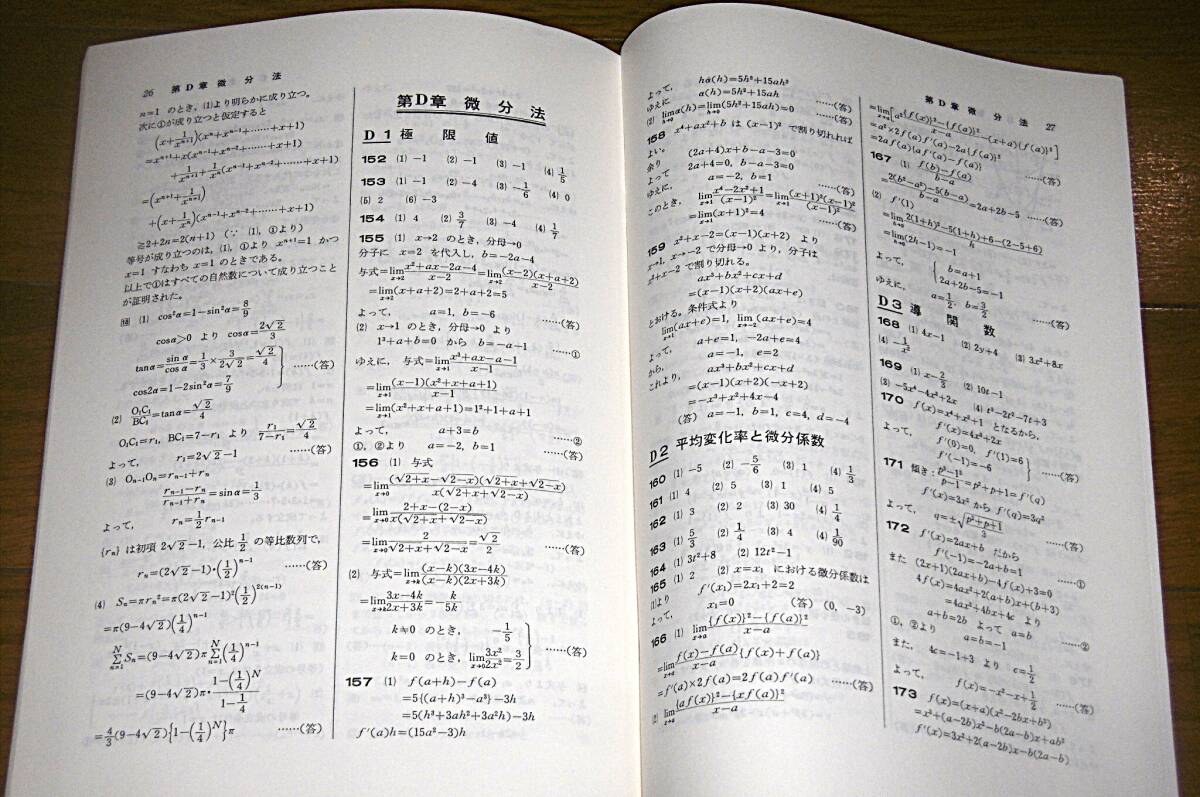 26 第D章 微分法
n=1 のとき, (1)より明らかに成り立つ。
次に①が成り立つと仮定すると
(x+1/x^{n+1})(x^n+x^{n-1}+……+x+1)
=x^{n+1}+x(x^{n-1}+x^{n-2}+……+x+1)
+1/x^{n+1}+1/x^n(x^{n-1}+x^{n-2}+……+x+1)
=(x^{n+1}+1/x^{n+1})
+(x+1/x^n)(x^{n-1}+x^{n-2}+……+x+1)
≧2+2n=2(n+1) (∵ (1), ①より)
等号が成り立つのは, (1), ①より x^{n+1}=1 かつ
x=1 すなわち x=1 のときである。
以上で①はすべての自然数について成り立つこと
が証明された。
(1) cos²α=1−sin²α=8/9
cosα>0 より cosα=2√2/3
tanα=sinα/cosα=1/3×3/2√2=√2/4
cos2α=1−2sin²α=7/9 ……(答)
(2) O₁C₁/BC₁=tanα=√2/4
O₁C₁=r₁, BC₁=7−r₁ より r₁/(7−r₁)=√2/4
よって, r₁=2√2−1 ……(答)
(3) O_{n-1}O_n=r_{n-1}+r_n
(r_{n-1}−r_n)/(r_{n-1}+r_n)=sinα=1/3
よって, r_n=1/2 r_{n-1}
{r_n} は初項 2√2−1, 公比 1/2 の等比数列で,
r_n=(2√2−1)・(1/2)^{n-1} ……(答)
(4) S_n=πr_n²=π(2√2−1)²(1/2)^{2(n-1)}
=π(9−4√2)(1/4)^{n-1}
Σ_{n=1}^{N} S_n=(9−4√2)πΣ_{n=1}^{N}(1/4)^{n-1}
=(9−4√2)π・(1−(1/4)^N)/(1−1/4)
=4/3(9−4√2){1−(1/4)^N}π ……(答)
第D章 微分法
D1 極限値
152 (1) −1 (2) −1 (3) −1 (4) 1/5
153 (1) −1 (2) −4 (3) −1/6 (4) 0
(5) 2 (6) −3
154 (1) 4 (2) 3/7 (3) −4 (4) 1/7
155 (1) x→2 のとき, 分母→0
分子に x=2 を代入し, b=−2a−4
与式=lim_{x→2}(x²+ax−2a−4)/(x−2)=lim_{x→2}(x−2)(x+a+2)/(x−2)
=lim_{x→2}(x+a+2)=2+a+2=5
よって, a=1, b=−6 ……(答)
(2) x→1 のとき, 分母→0 より
1³+a+b=0 から b=−a−1 ……①
ゆえに, 与式=lim_{x→1}(x³+ax−a−1)/(x−1)
=lim_{x→1}(x−1)(x²+x+a+1)/(x−1)
=lim_{x→1}(x²+x+a+1)=1²+1+a+1
よって, a+3=b ……②
①, ②より a=−2, b=1 ……(答)
156 (1) 与式
=lim_{x→0}(√2+x−√2−x)(√2+x+√2−x)/x(√2+x+√2−x)
=lim_{x→0}(2+x−(2−x))/x(√2+x+√2−x)
=lim_{x→0}2/(√2+x+√2−x)=√2/2 ……(答)
(2) 与式=lim_{x→k}(x−k)(3x−4k)/(x−k)(2x+3k)
=lim_{x→k}(3x−4k)/(2x+3k)=−k/5k
k≠0 のとき, −1/5
k=0 のとき, lim_{x→0}3x²/2x²=3/2 ……(答)
157 (1) f(a+h)−f(a)
=5{(a+h)³−a³}−3h
=5(h³+3ah²+3a²h)−3h
f′(a)h=(15a²−3)h
よって, hα(h)=5h³+15ah²
ゆえに α(h)=5h²+15ah ……(答)
(2) lim_{h→0}α(h)=lim_{h→0}(5h²+15ah)=0 ……(答)
158 x⁴+ax²+b は (x−1)² で割り切れれば
よい。
余り (2a+4)x+b−a−3=0
よって 2a+4=0, b−a−3=0
ゆえに, a=−2, b=1 ……(答)
このとき, lim_{x→1}(x⁴−2x²+1)/(x−1)²=lim_{x→1}(x+1)²(x−1)²/(x−1)²
=lim_{x→1}(x+1)²=4 ……(答)
159 x²+x−2=(x−1)(x+2) より
x→1, x→−2 で分母→0 より, 分子は
x²+x−2 で割り切れる。
ax³+bx²+cx+d
=(x−1)(x+2)(ax+e)
とおける。条件式より
lim_{x→1}(ax+e)=1, lim_{x→−2}(ax+e)=4
よって, a+e=1, −2a+e=4
から, a=−1, e=2
これより, ax³+bx²+cx+d
=(x−1)(x+2)(−x+2)
=−x³+x²+4x−4
(答) a=−1, b=1, c=4, d=−4
D2 平均変化率と微分係数
160 (1) −5 (2) −5/6 (3) 1 (4) 1/3
161 (1) 4 (2) 5 (3) 1 (4) 5
162 (1) 3 (2) 2 (3) 30 (4) 1/4
163 (1) 5/3 (2) 1/4 (3) 4 (4) 1/90
164 (1) 3t²+8 (2) 12t²−1
165 (1) 2 (2) x=x₁ における微分係数は
(1)より f′(x₁)=2x₁+2=2
よって, x₁=0 (答) (0, −3)
166 (1) lim_{x→a}({f(x)}²−{f(a)}²)/(x−a)
=lim_{x→a}(f(x)−f(a))/(x−a){f(x)+f(a)}
=f′(a)×2f(a)=2f(a)f′(a) ……(答)
(2) lim_{x→a}({af(x)}²−{xf(a)}²)/(x−a)
第D章 微分法 27
=lim_{x→a}[a²({f(x)}²−{f(a)}²)/(x−a)−(x+a){f(a)}²]
=a²×2f(a)f′(a)−2a{f(a)}²
=2af(a){af′(a)−f(a)} ……(答)
167 (1) (f(b)−f(a))/(b−a)
=(2(b²−a²)−5(b−a))/(b−a)=2a+2b−5 ……(答)
(2) f′(1)
=lim_{h→0}(2(1+h)²−5(1+h)+6−(2−5+6))/h
=lim_{h→0}(2h−1)=−1
よって, {b=a+1
2a+2b−5=−1
ゆえに, a=1/2, b=3/2 ……(答)
D3 導関数
168 (1) 4x−1 (2) 2y+4 (3) 3x²+8x
(4) −1/x²
169 (1) x−2/3 (2) 10t−1
(3) −5x⁴−4x³+2x (4) t³−2t²−7t+3
170 f(x)=x⁴+x²+1 となるから,
f′(x)=4x³+2x
よって, f′(0)=0, f′(1)=6
f′(−1)=−6 ……(答)
171 傾き: (p³−1³)/(p−1)=p²+p+1=f′(q)
f′(x)=3x² から f′(q)=3q²
よって, q=±√(p²+p+1)/3 ……(答)
172 f′(x)=2ax+b だから
f′(−1)=−2a+b=1 ……①
また (2x+1)(2ax+b)−4f(x)+3=0
4f(x)=4ax²+2(a+b)x+(b+3)
=4ax²+4bx+4c より
a+b=2b よって a=b ……②
①, ②より a=b=−1
また, 4c=−1+3 より c=1/2
よって, f(x)=−x²−x+1/2 ……(答)
173 f(x)=(x+a)(x²−2bx+b²)
=x³+(a−2b)x²−b(2a−b)x+ab²
f′(x)=3x²+2(a−2b)x−b(2a−b)